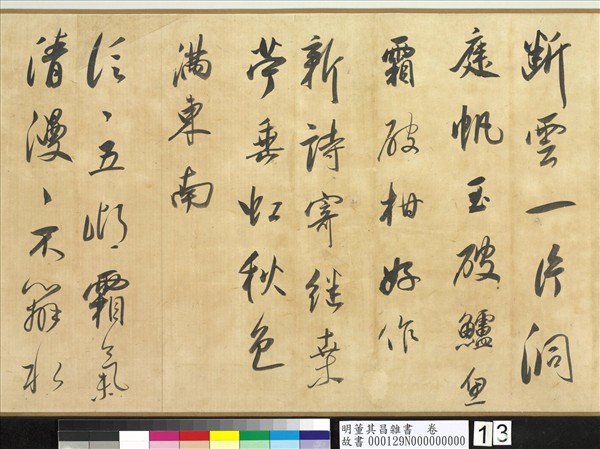 断雲一片洞
庭帆玉破鱸魚
霜破柑好作
新詩寄継桑
苧垂虹秋色
滿東南
泛々五湖霜氣
清漫々不辨水
明董其昌雜書 卷
故書 000129N000000000
13